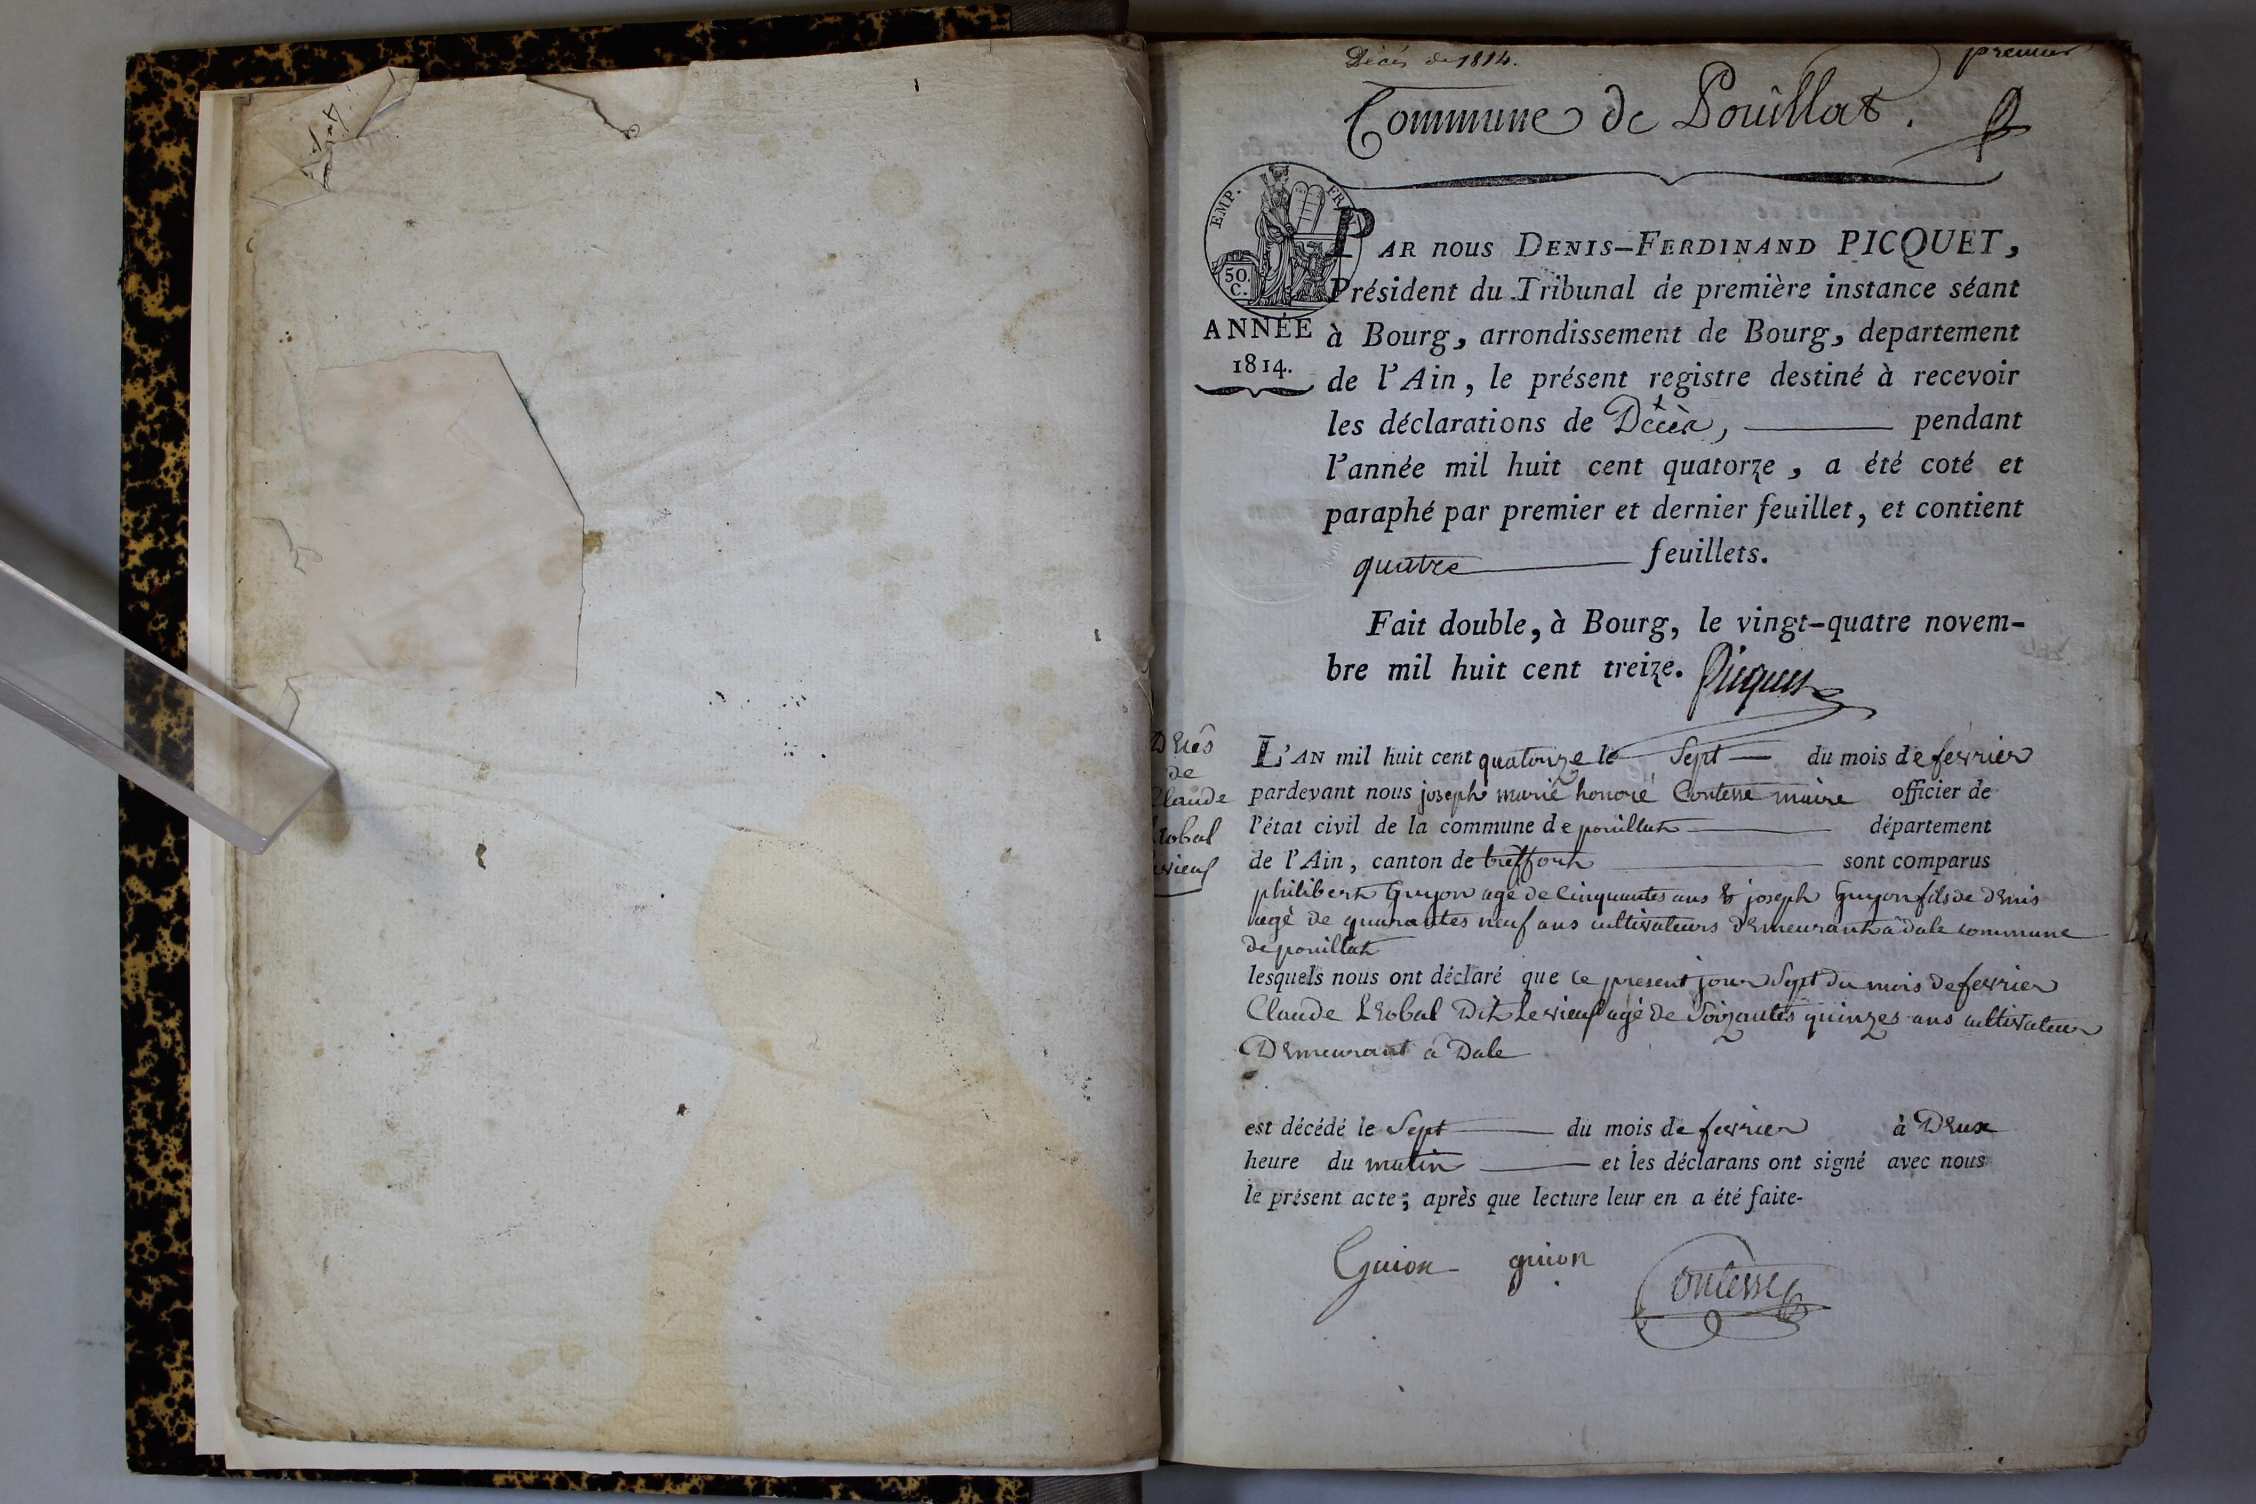 Décès de 1814.
premier
Commune de Pouillat.
EMP. FR.
50.
C.
ANNÉE
1814.
PAR nous DENIS-FERDINAND PICQUET,
Président du Tribunal de première instance séant
à Bourg, arrondissement de Bourg, departement
de l'Ain, le présent registre destiné à recevoir
les déclarations de Décès, pendant
l'année mil huit cent quatorze, a été coté et
paraphé par premier et dernier feuillet, et contient
quatre feuillets.
Fait double, à Bourg, le vingt-quatre novem-
bre mil huit cent treize. Picquet
Décés
de
Claude
vieux
L'AN mil huit cent quatorze le Sept du mois de fevrier
pardevant nous joseph marie honoré Contesse maire officier de
l'état civil de la commune de pouillat département
de l'Ain, canton de treffort sont comparus
philibert Guyon agé de Cinquantes ans & joseph Guyon fils de denis
agé de quarantes neuf ans cultivateurs demeurant à dale commune
de pouillat
lesquels nous ont déclaré que ce present jour Sept du mois de fevrier
Claude Dit Le vieux agé de Soizantes quinzes ans cultivateur
Demeurant à Dale
est décédé le Sept du mois de fevrier à Deux
heure du matin et les déclarans ont signé avec nous
le présent acte; après que lecture leur en a été faite-
Guion guion Contesse